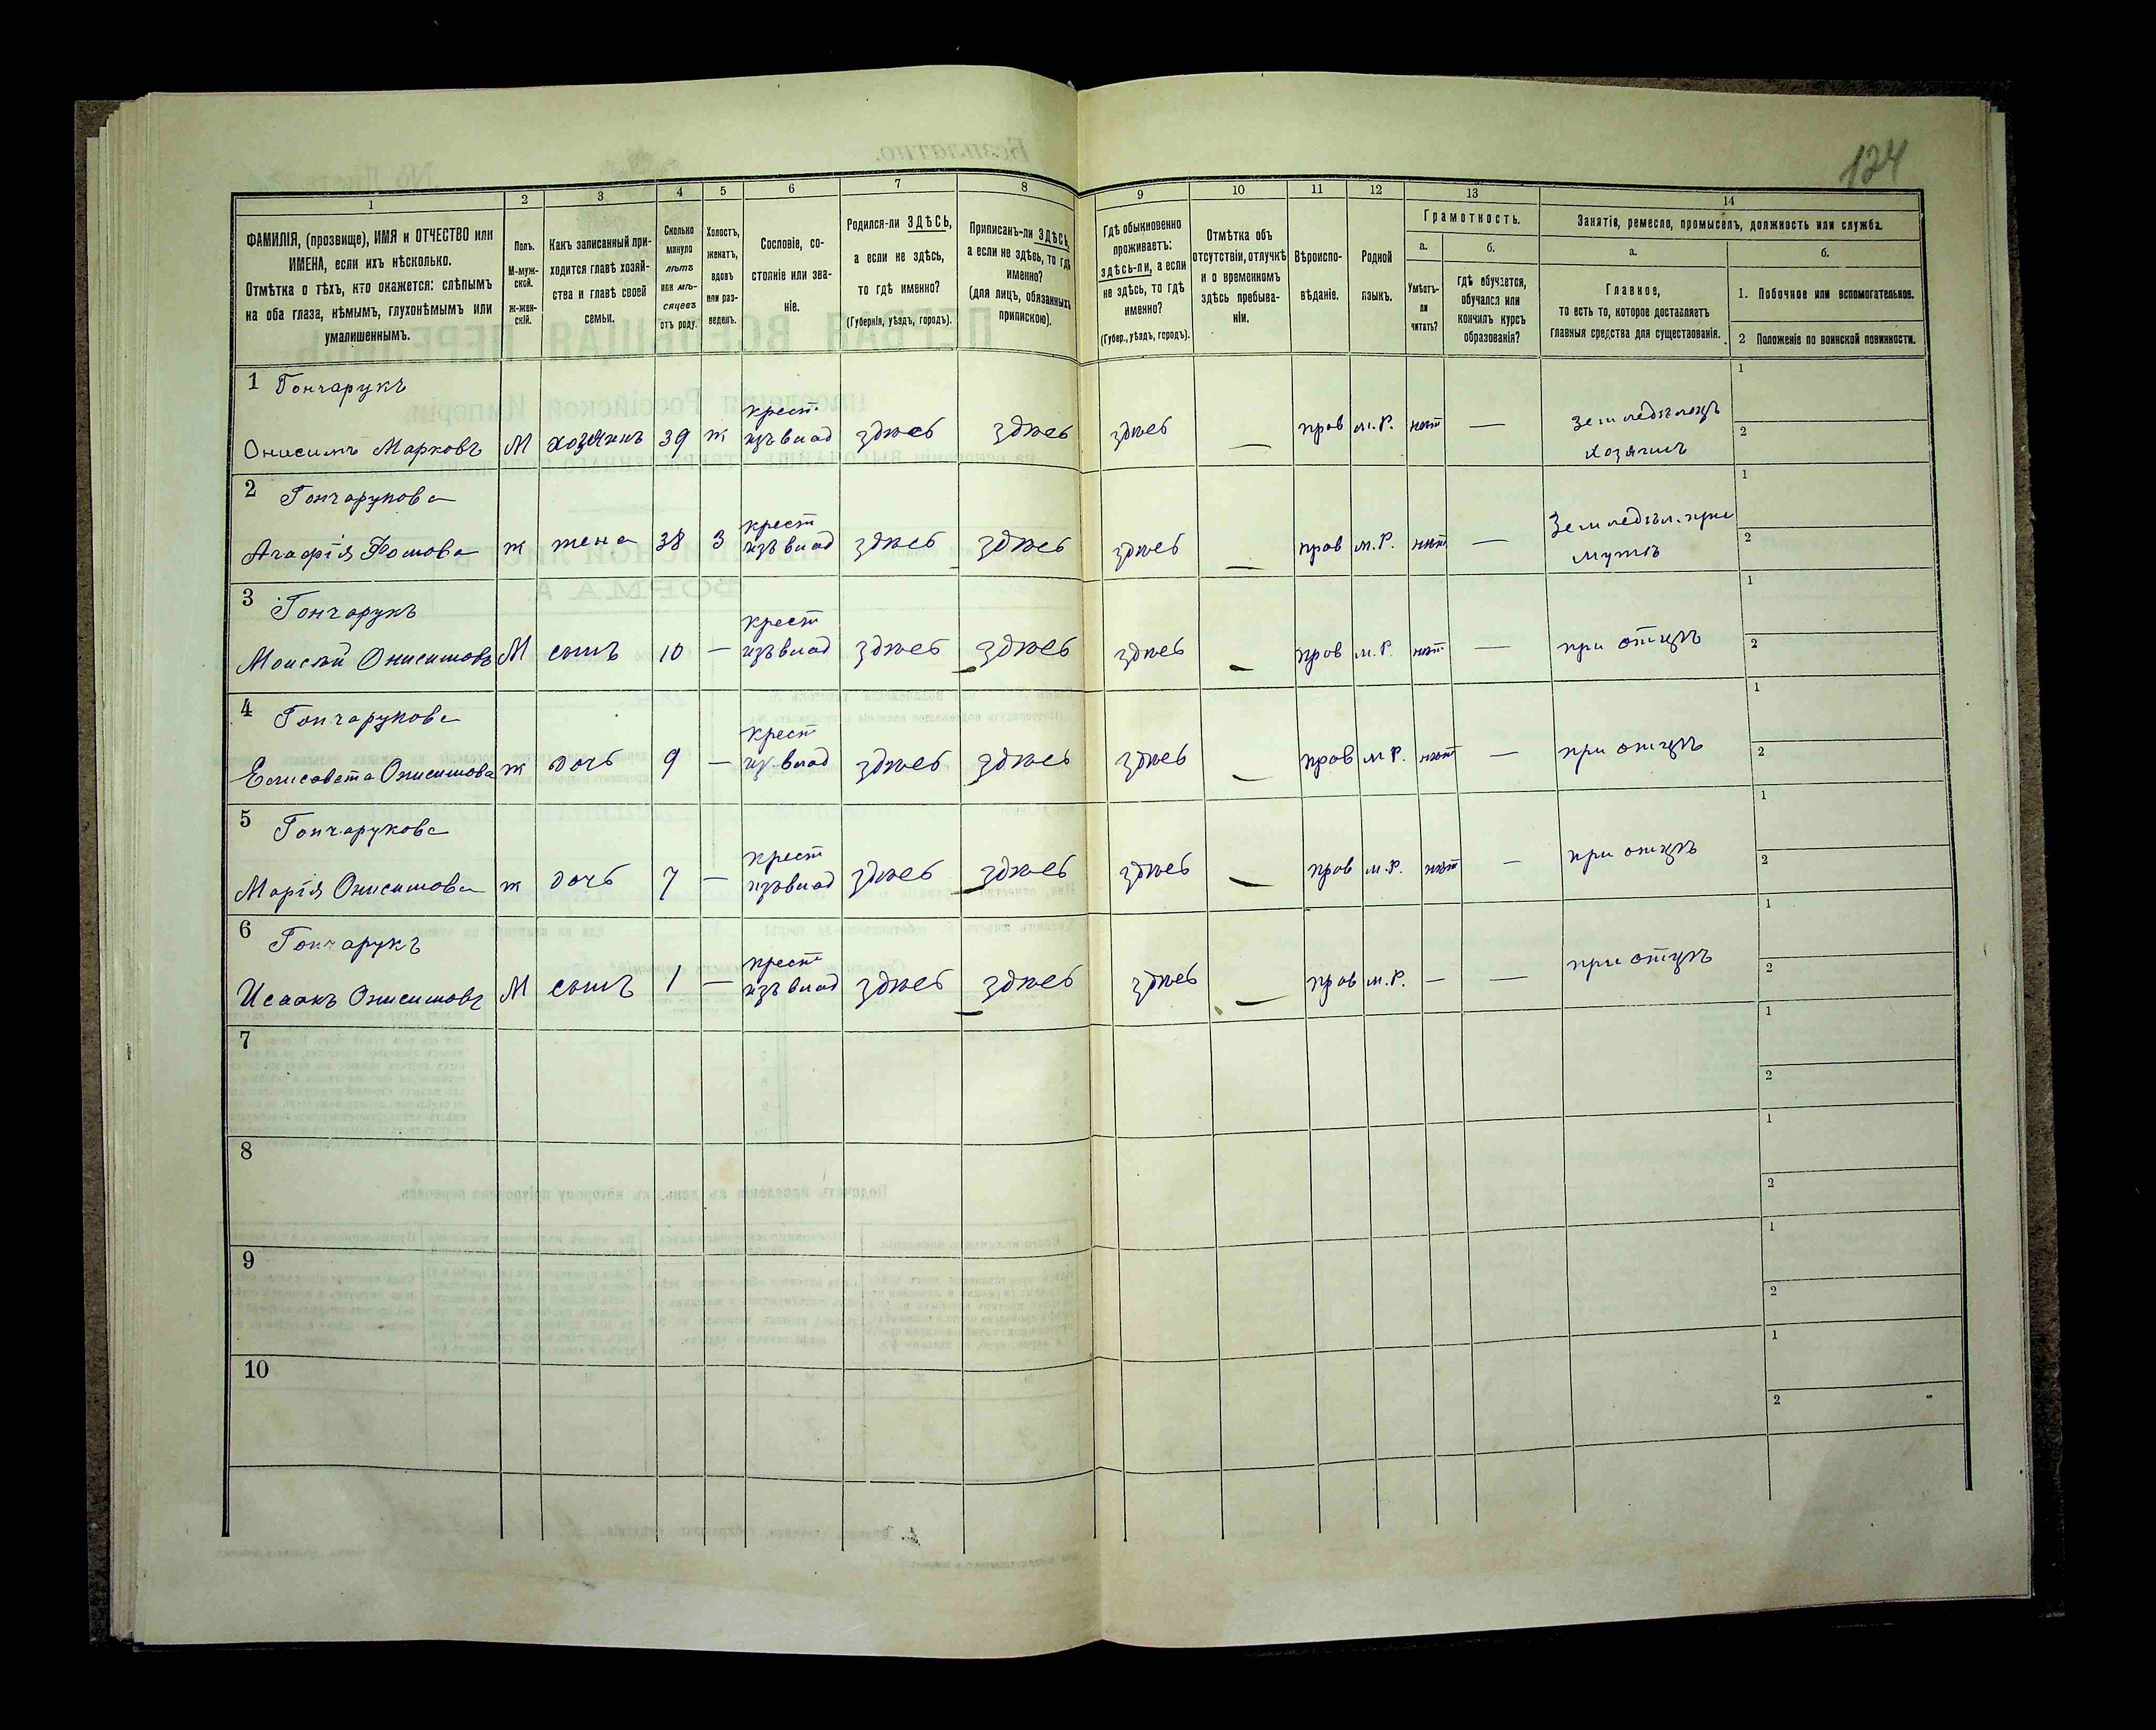 124
1
2
3
4
5
6
7
8
9
10
11
12
13
14
ФАМИЛІЯ, (прозвище), ИМЯ и ОТЧЕСТВО или
ИМЕНА, если ихъ нѣсколько.
Отмѣтка о тѣхъ, кто окажется: слѣпымъ
на оба глаза, нѣмымъ, глухонѣмымъ или
умалишеннымъ.
Полъ.
М-муж-
ской.
Ж-жен-
скій.
Какъ записанный при-
ходится главѣ хозяй-
ства и главѣ своей
семьи.
Сколько
минуло
лѣтъ
или мѣ-
сяцевъ
отъ роду.
Холостъ,
женатъ,
вдовъ
или раз-
веденъ.
Сословіе, со-
стояніе или зва-
ніе.
Родился-ли ЗДѢСЬ,
а если не здѣсь,
то гдѣ именно?
(Губернія, уѣздъ, городъ).
Приписанъ-ли ЗДѢСЬ,
а если не здѣсь, то гдѣ
именно?
(для лицъ, обязанныхъ
припискою).
Гдѣ обыкновенно
проживаетъ:
здѣсь-ли, а если
не здѣсь, то гдѣ
именно?
(Губер., уѣздъ, городъ).
Отмѣтка объ
отсутствіи, отлучкѣ
и о временномъ
здѣсь пребыва-
ніи.
Вѣроиспо-
вѣданіе.
Родной
языкъ.
Грамотность.
а.
Умѣетъ-
ли
читать?
б.
Гдѣ обучается,
обучался или
кончилъ курсъ
образованія?
Занятіе, ремесло, промыселъ, должность или служба.
а.
Главное,
то есть то, которое доставляетъ
главныя средства для существованія.
б.
1. Побочное или вспомогательное.
2 Положеніе по воинской повинности.
1 Гончарукъ
Онисимъ Марковъ М хозяинъ 39 ж крест изъ влад здѣсь здѣсь здѣсь — прав м.Р. нѣт — Земледѣлецъ хозяинъ 1 2
2 Гончарукова
Агафія Фомова ж жена 38 З крест изъ влад здѣсь здѣсь здѣсь — прав м.Р. нѣт — Земледѣл. при мужѣ 1 2
3 Гончарукъ
Моисѣй Онисимовъ М сынъ 10 — крест изъ влад здѣсь здѣсь здѣсь — прав м.Р. нѣт — при отцѣ 1 2
4 Гончарукова
Елисавета Онисимова ж дочь 9 — крест из влад здѣсь здѣсь здѣсь — прав м.Р. нѣт — при отцѣ 1 2
5 Гончарукова
Марія Онисимова ж дочь 7 — крест изъ влад здѣсь здѣсь здѣсь — прав м.Р. нѣт — при отцѣ 1 2
6 Гончарукъ
Исаакъ Онисимовъ М сынъ 1 — крест изъ влад здѣсь здѣсь здѣсь — прав м.Р. — — при отцѣ 1 2
7 1 2
8 1 2
9 1 2
10 1 2